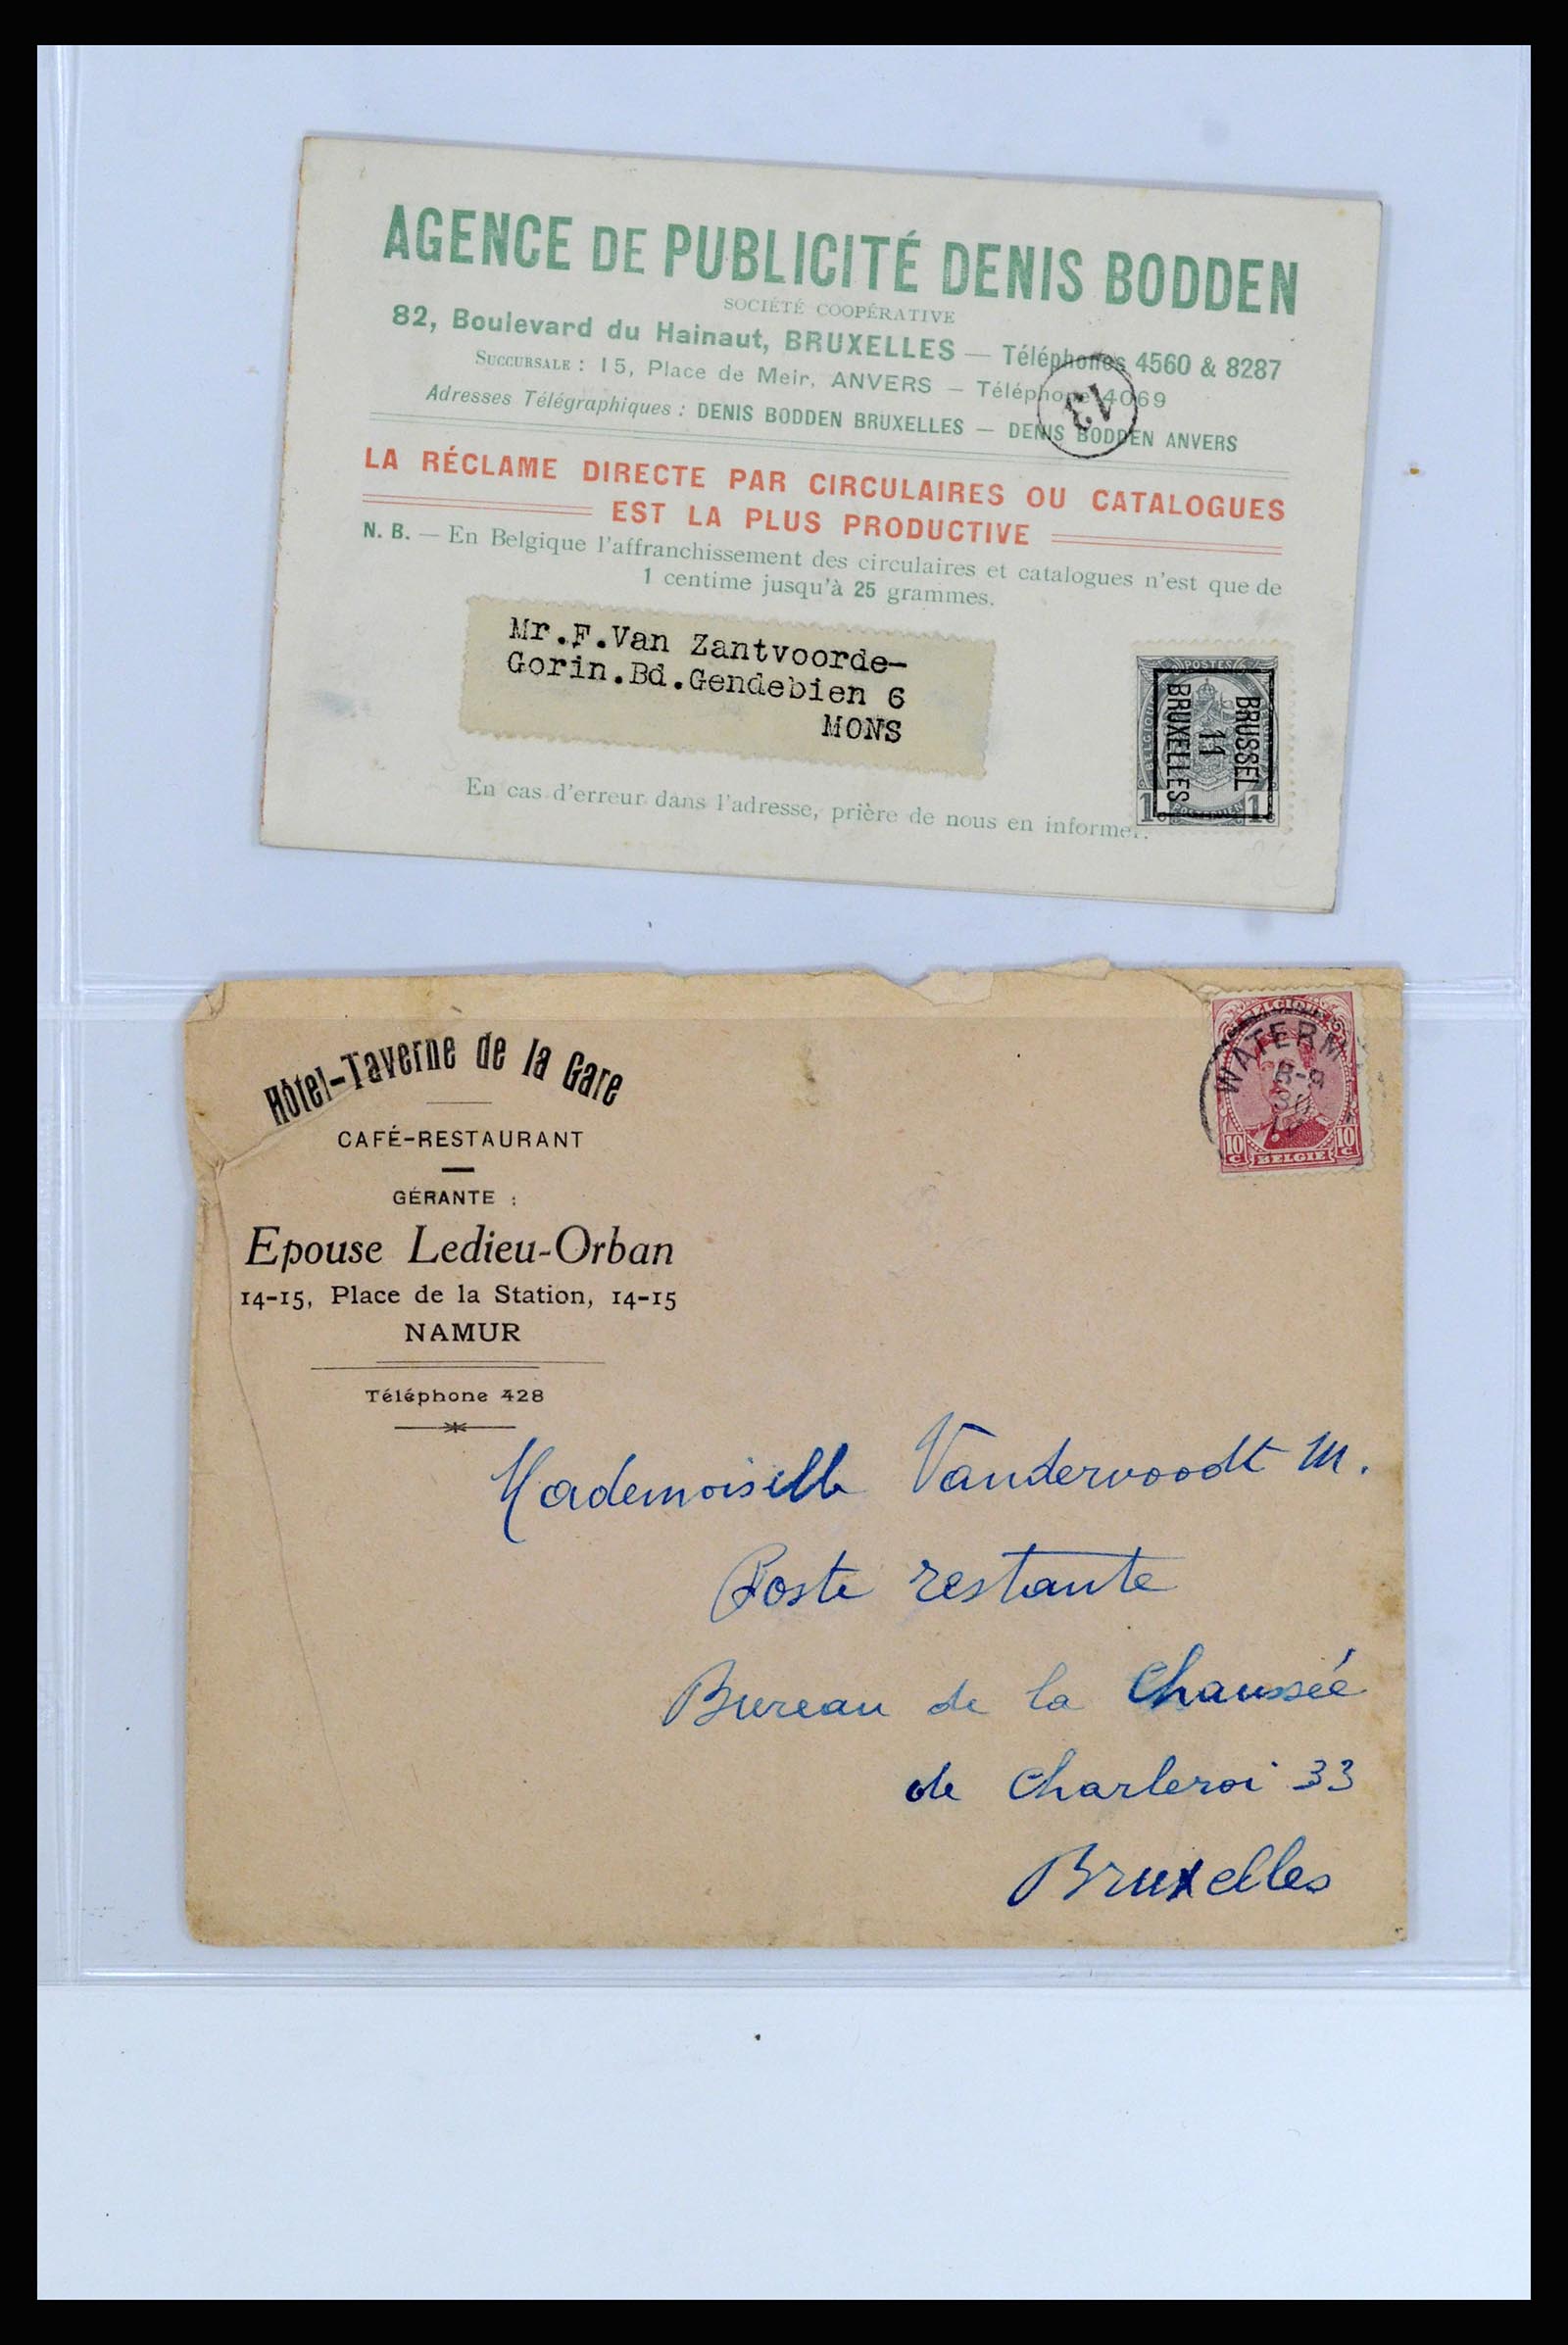 AGENCE DE PUBLICITÉ DENIS BODDEN
SOCIÉTÉ COOPÉRATIVE
82, Boulevard du Hainaut, BRUXELLES — Téléphones 4560 & 8287
SUCCURSALE : 15, Place de Meir, ANVERS — Téléphone 4069
Adresses Télégraphiques : DENIS BODDEN BRUXELLES — DENIS BODDEN ANVERS
13
LA RÉCLAME DIRECTE PAR CIRCULAIRES OU CATALOGUES
EST LA PLUS PRODUCTIVE
N. B. — En Belgique l'affranchissement des circulaires et catalogues n'est que de
1 centime jusqu'à 25 grammes.
Mr.F.Van Zantvoorde-
Gorin.Bd.Gendebien 6
MONS
POSTES
BRUSSEL
11
BRUXELLES
1c 1c
En cas d'erreur dans l'adresse, prière de nous en informer.
Hôtel-Taverne de la Gare
CAFÉ-RESTAURANT
GÉRANTE :
Epouse Ledieu-Orban
14-15, Place de la Station, 14-15
NAMUR
Téléphone 428
BELGIQUE
WATERM
8-9
10 c BELGIË 10 c
Mademoiselle Vandervoodt M.
Poste restante
Bureau de la Chaussée
de Charleroi 33
Bruxelles